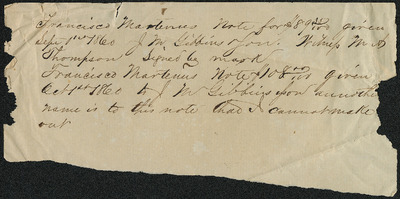 Francisco Martenus Note for $89 given
Sept 1st 1860 J. M. Gibbins & Son. Witness M. D
Thompson signed by mark
Francisco Martenus Note $108 given
Oct 1st 1860 to J M Gibbins & son
name is to this note that I cannot make
out